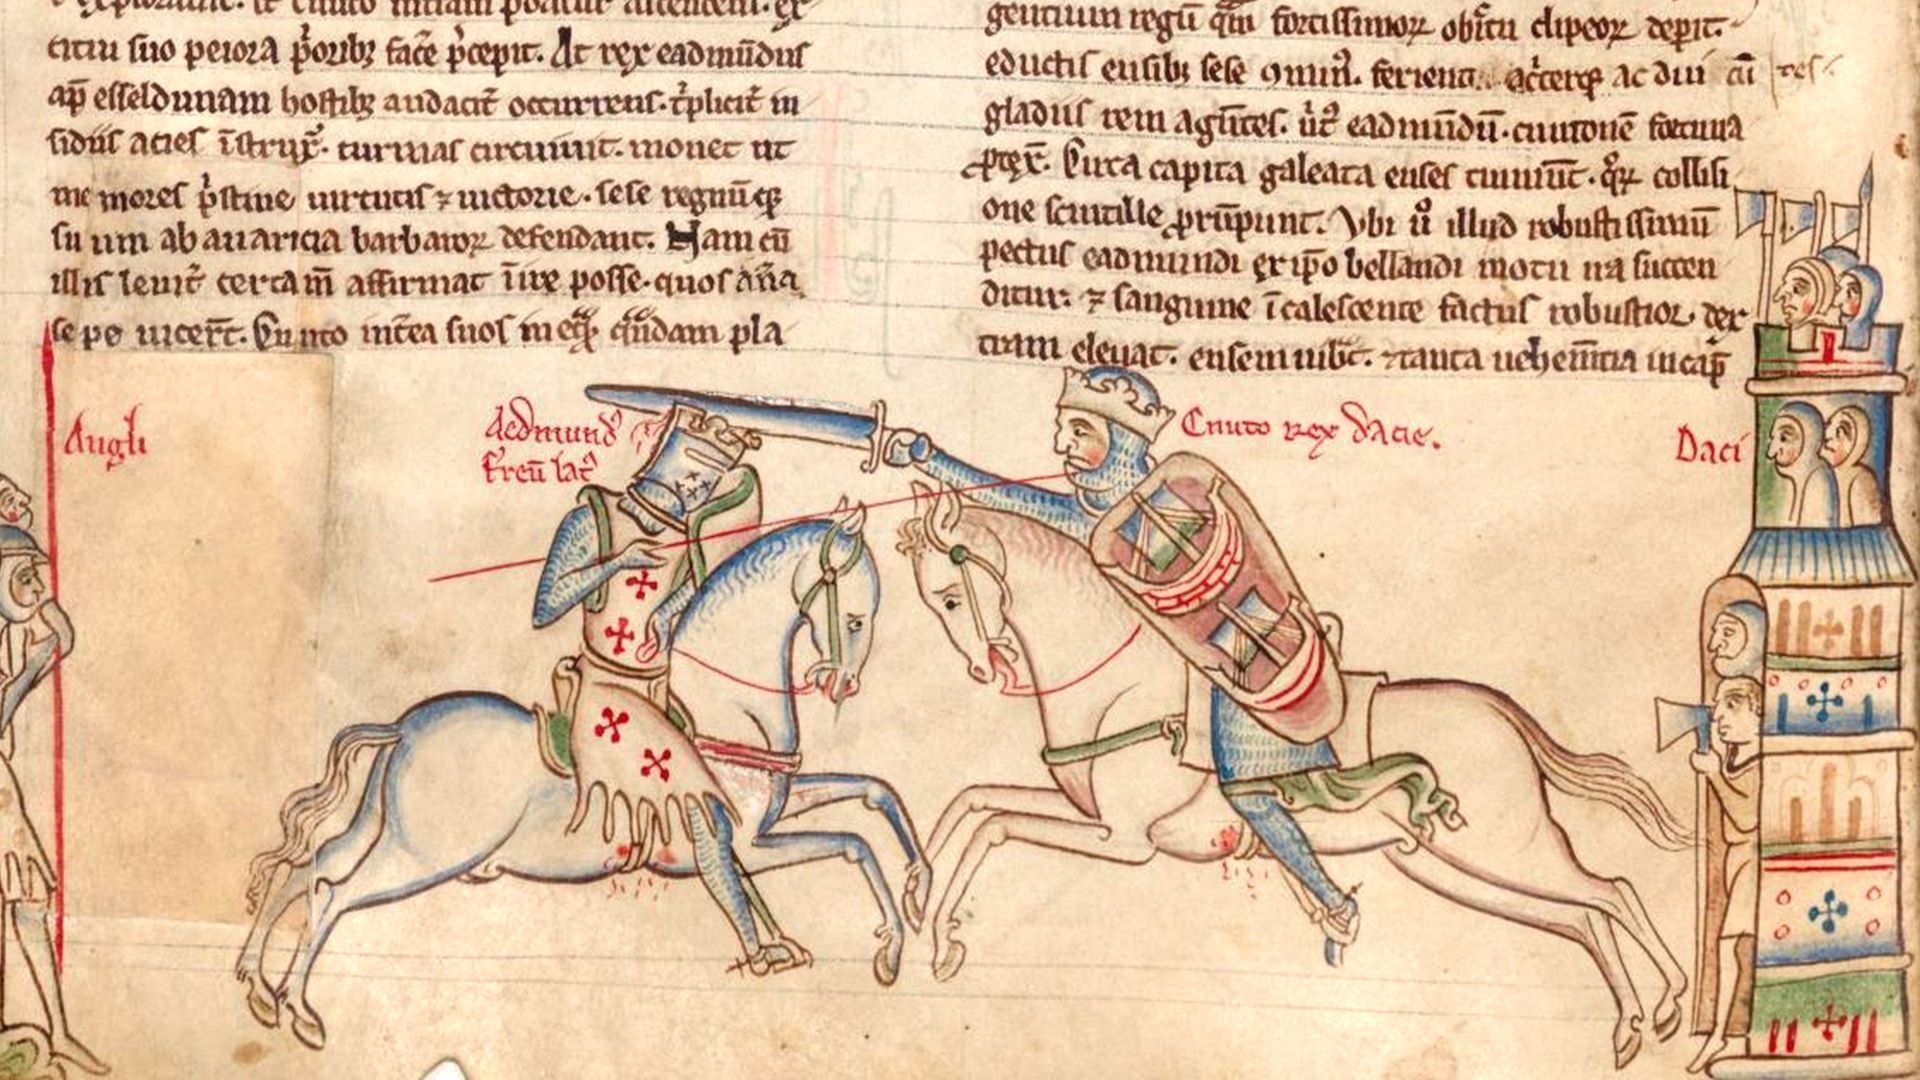 citui suo peiora p̓oribꝫ fac̄e p̓cepit. At rex eadmūdus
ap̄ esseldunam hostibꝫ audacit̓ occurrens. t̓plicit̓ in
sidiis acies īstrux̓. turmas circuiuit. monet ut
memores p̓stine uirtutis ⁊ uictorie. sese regnūqꝫ
suum ab auaricia barbaroꝝ defendant. Nam cū
illis leuit̓ certam̄ affirmat īire posse. quos an̄a
sepe uicer̄t. Cnuto int̄ea suos in eqͣꝝ qͣndam pla
gentium regū qͣm fortissimoꝝ ob̓ctu clipeoꝝ depit.
eductis ensibꝫ sese ꝯmin᷒. ferient. ac̓terqꝫ ac diu cū
tes.
gladiis rem agūtes. u̓t̓ eadmūdū. cnutonē fortuna
ꝓtex̄. Circa capita galeata enses tinniūt. qͦꝝ collisi
one scintille ꝓrūpunt. Vbi u̓o illud robustissimū
pectus eadmundi ex ip̄o bellandi motu ita succen
ditur: ⁊ sanguine īcalescente factus robustior. dex
tram eleuat. ensem uib̄t. ⁊ tanta uehem̄tia in cap̄
Angli
Aedmund᷒
ferrū lat᷒
Cnuto rex dacie.
Daci